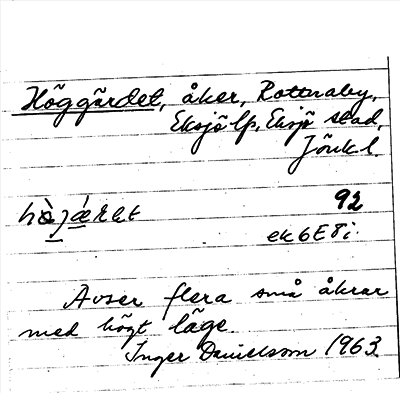 Höggärdet, åker, Rottnaby,
Eksjö lfs, Eksjö stad,
Jönk l.
92
ek 6E8i.
Avser flera små åkrar
med högt läge.
Inger Danielsson 1963